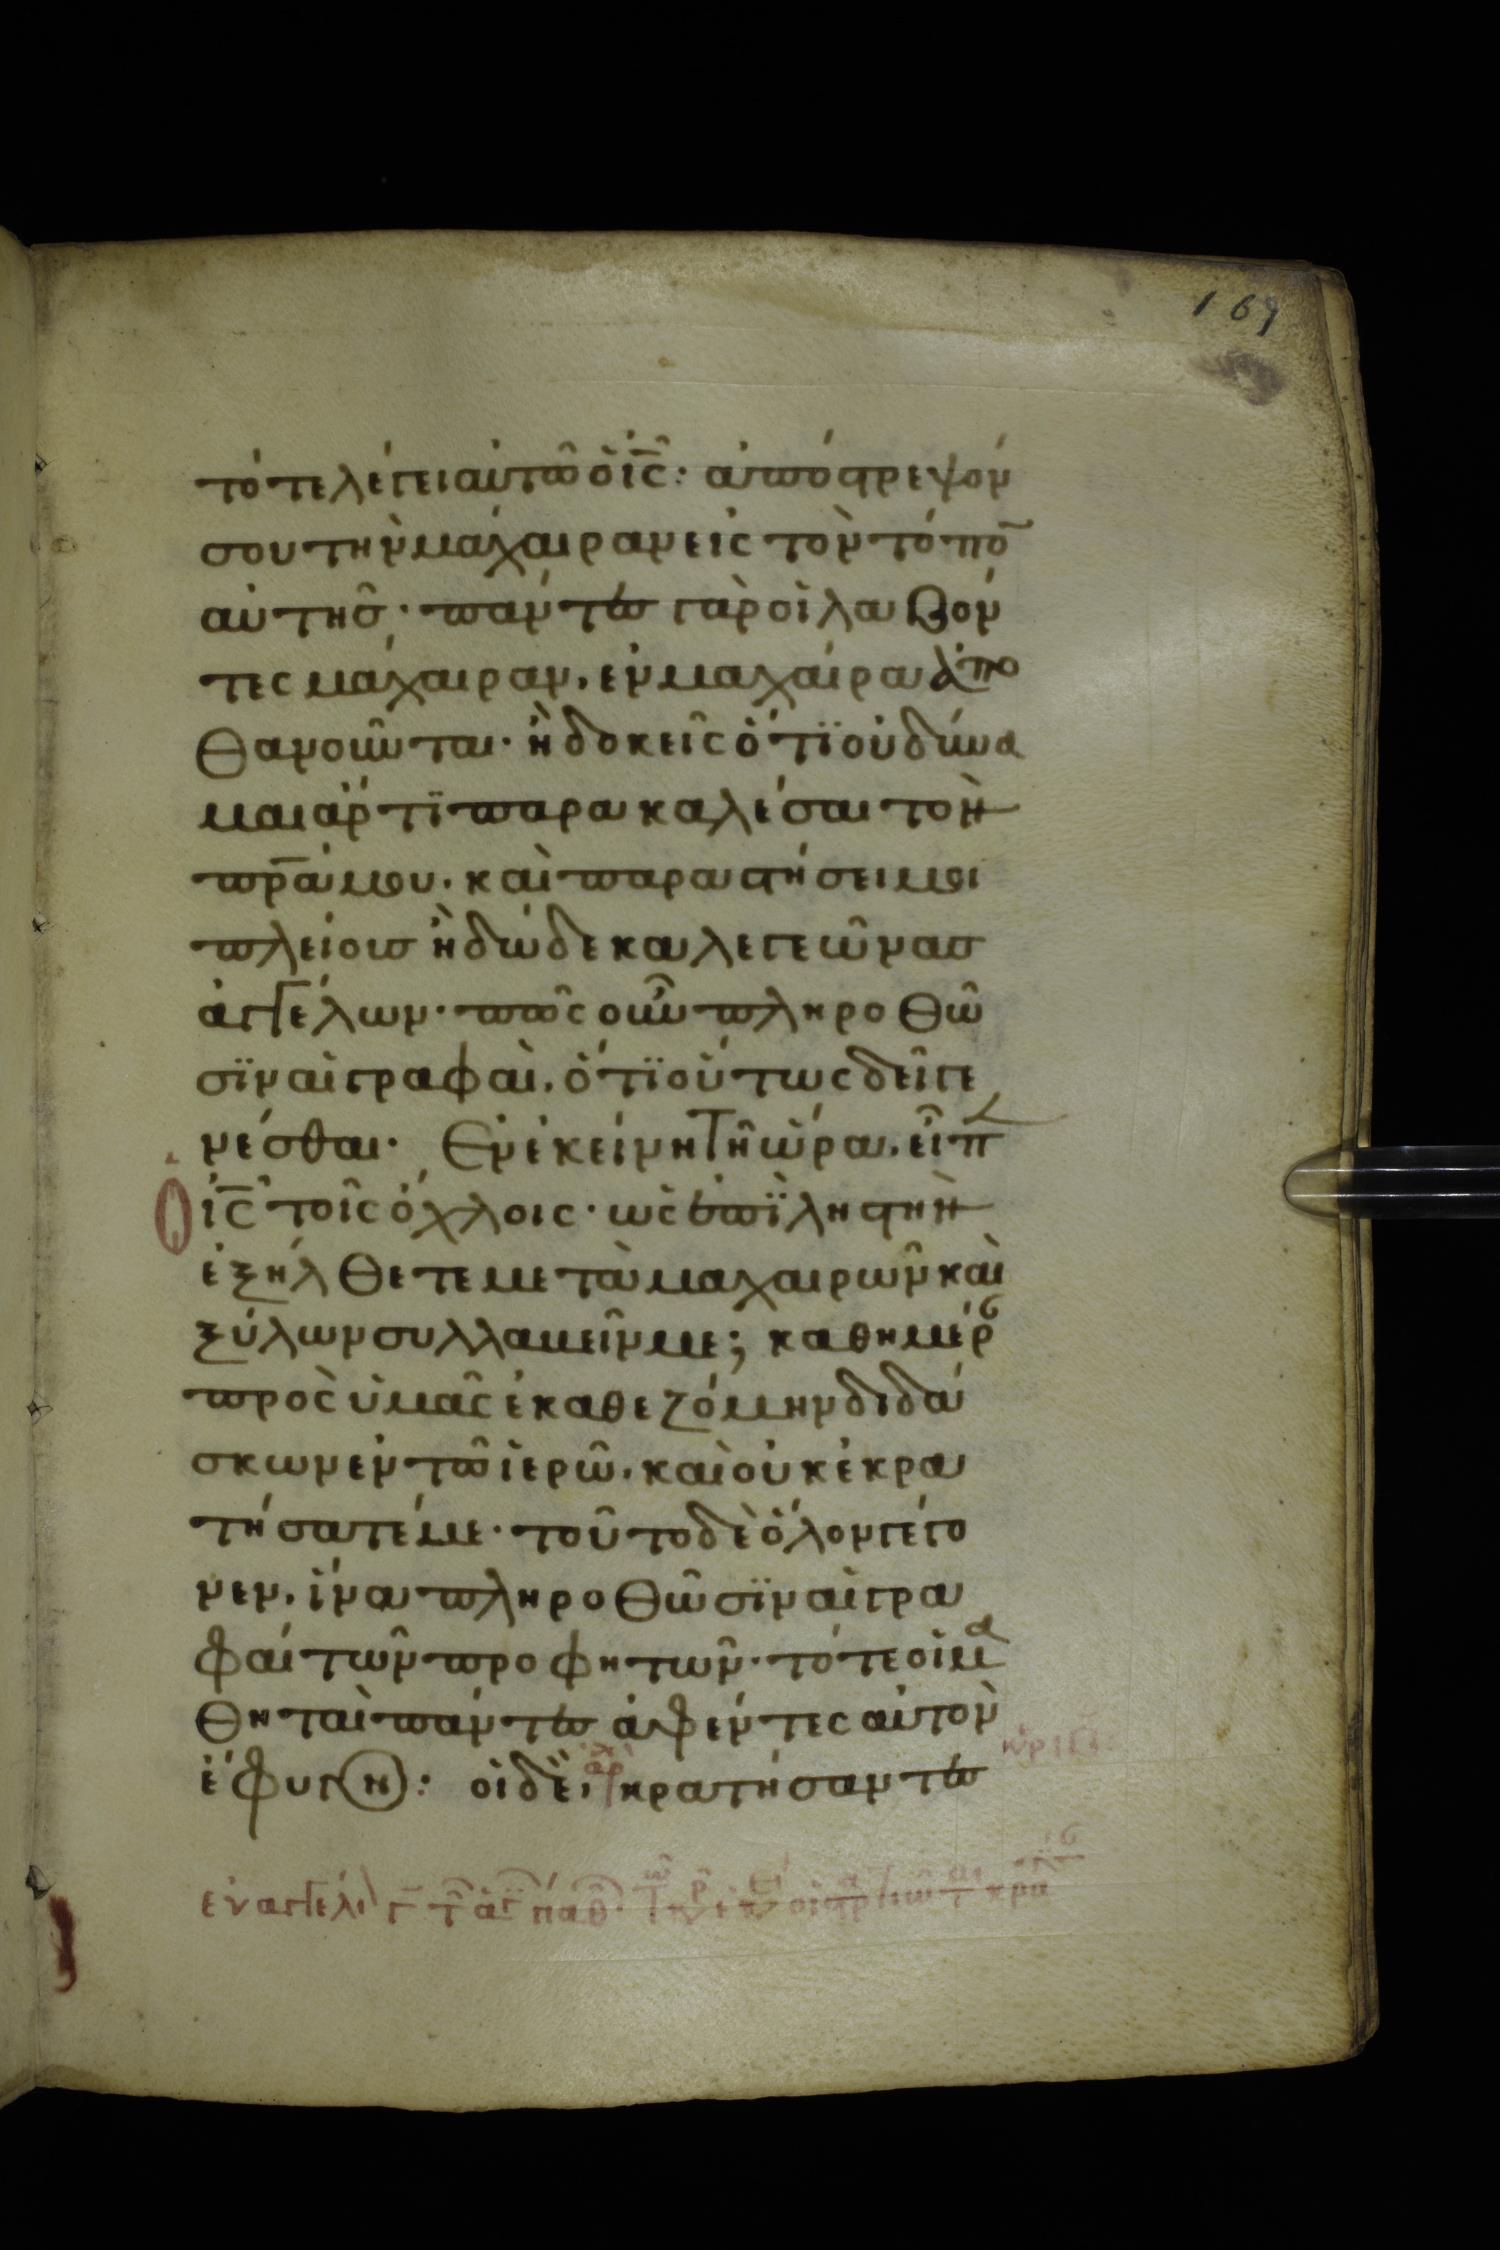 169
τότε λέγει αὐτῶ ὁ ἰ̅ς̅: ἀπόστρεψόν
σου τὴν μάχαιραν εἰς τὸν τόπο̅
αὐτῆς· πάντες γὰρ οἱ λαβόν
τες μάχαιραν, ἐν μαχαίρα ἀπο
θανοῦνται· ἢ δοκεῖς ὅτϊ οὐ δύνα
μαι ἄρτϊ παρακαλέσαι τὸν
π̅ρ̅α μου, καὶ παραστήσει μοι
πλείους ἢ δώδεκα λεγεῶνας
ἀγγέλων· πῶς οὖν πληροθῶ
σϊν αἱ γραφαὶ, ὅτϊ οὕτως δεῖ γε
νέσθαι· Εν ἐκείνη τῆ ὥρα, εἶπ
ὁ ἰ̅ς̅ τοῖς ὄχλοις· ὡς ἐπϊ ληστὴν
ἐξήλθετε μετὰ μαχαιρῶν καὶ
ξύλων συλλαβεῖν με; καθημέρ
πρὸς ὑμᾶς ἐκαθεζόμην διδά
σκων ἐν τῶ ἱερῶ, καὶ οὐκ ἐκρα
τήσατέ με· τοῦτο δὲ ὅλον γέγο
νεν, ἵνα πληροθῶσϊν αἱ γρα
φαί τῶν προφητῶν· τότε οἱ μα
θηταὶ πάντες ἀφέντες αὐτὸν
ἔφυγον: οἱ δὲ, κρατήσαντες
αρ